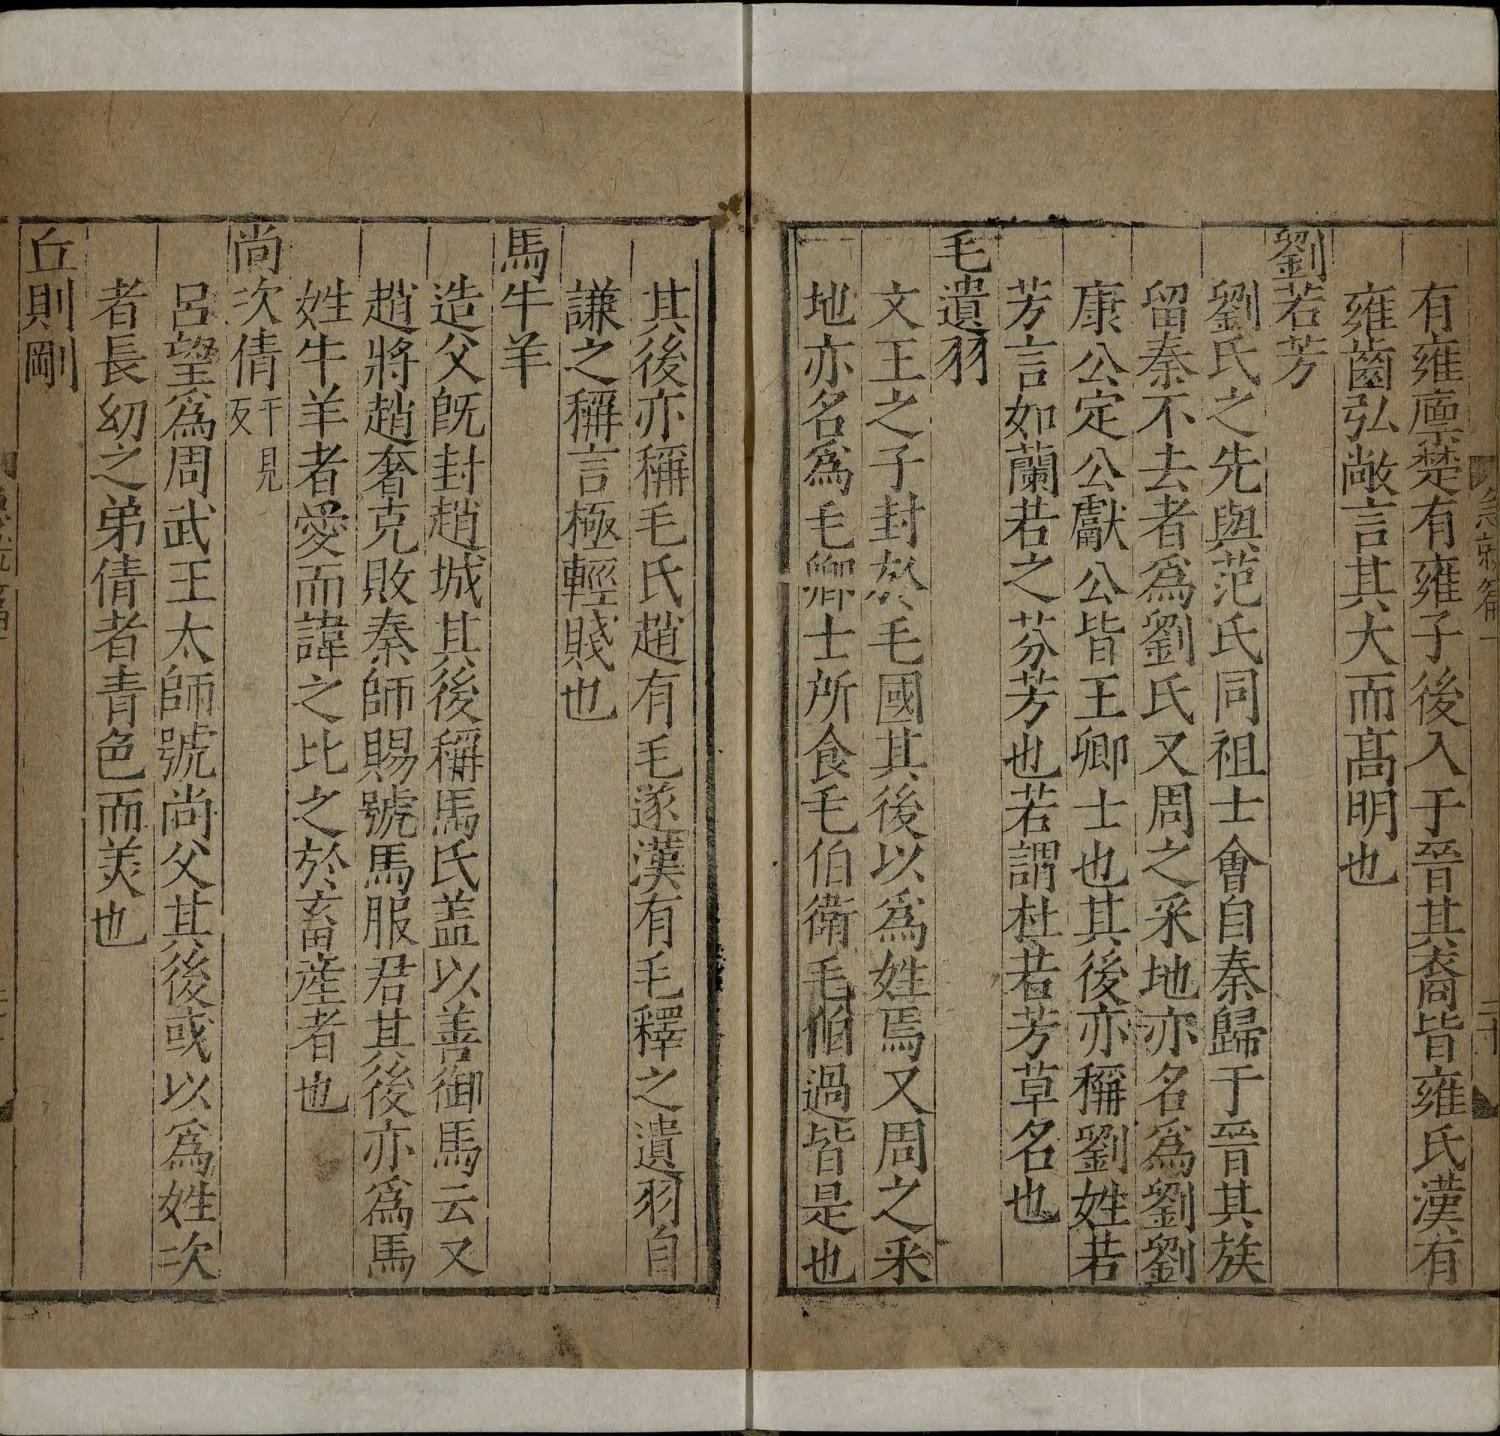 急就篇一
二十
有雍廩楚有雍子後入于晉其裔皆雍氏漢有
雍齒弘敞言其大而髙明也
劉若芳
劉氏之先與范氏同祖士會自秦歸于晉其族
留秦不去者爲劉氏又周之采地亦名爲劉劉
康公定公獻公皆王卿士也其後亦稱劉姓若
芳言如蘭若之芬芳也若謂杜若芳草名也
毛遺羽
文王之子封於毛國其後以爲姓焉又周之采
地亦名爲毛卿士所食毛伯衛毛伯過皆是也
其後亦稱毛氏趙有毛遂漢有毛釋之遺羽自
謙之稱言極輕賤也
馬牛羊
造父旣封趙城其後稱馬氏盖以善御馬云又
趙將趙奢克敗秦師賜號馬服君其後亦爲馬
姓牛羊者愛而諱之比之於畜産者也
尚次倩干見反
呂望爲周武王太師號尚父其後或以爲姓次
者長㓜之弟倩者青色而美也
丘則剛